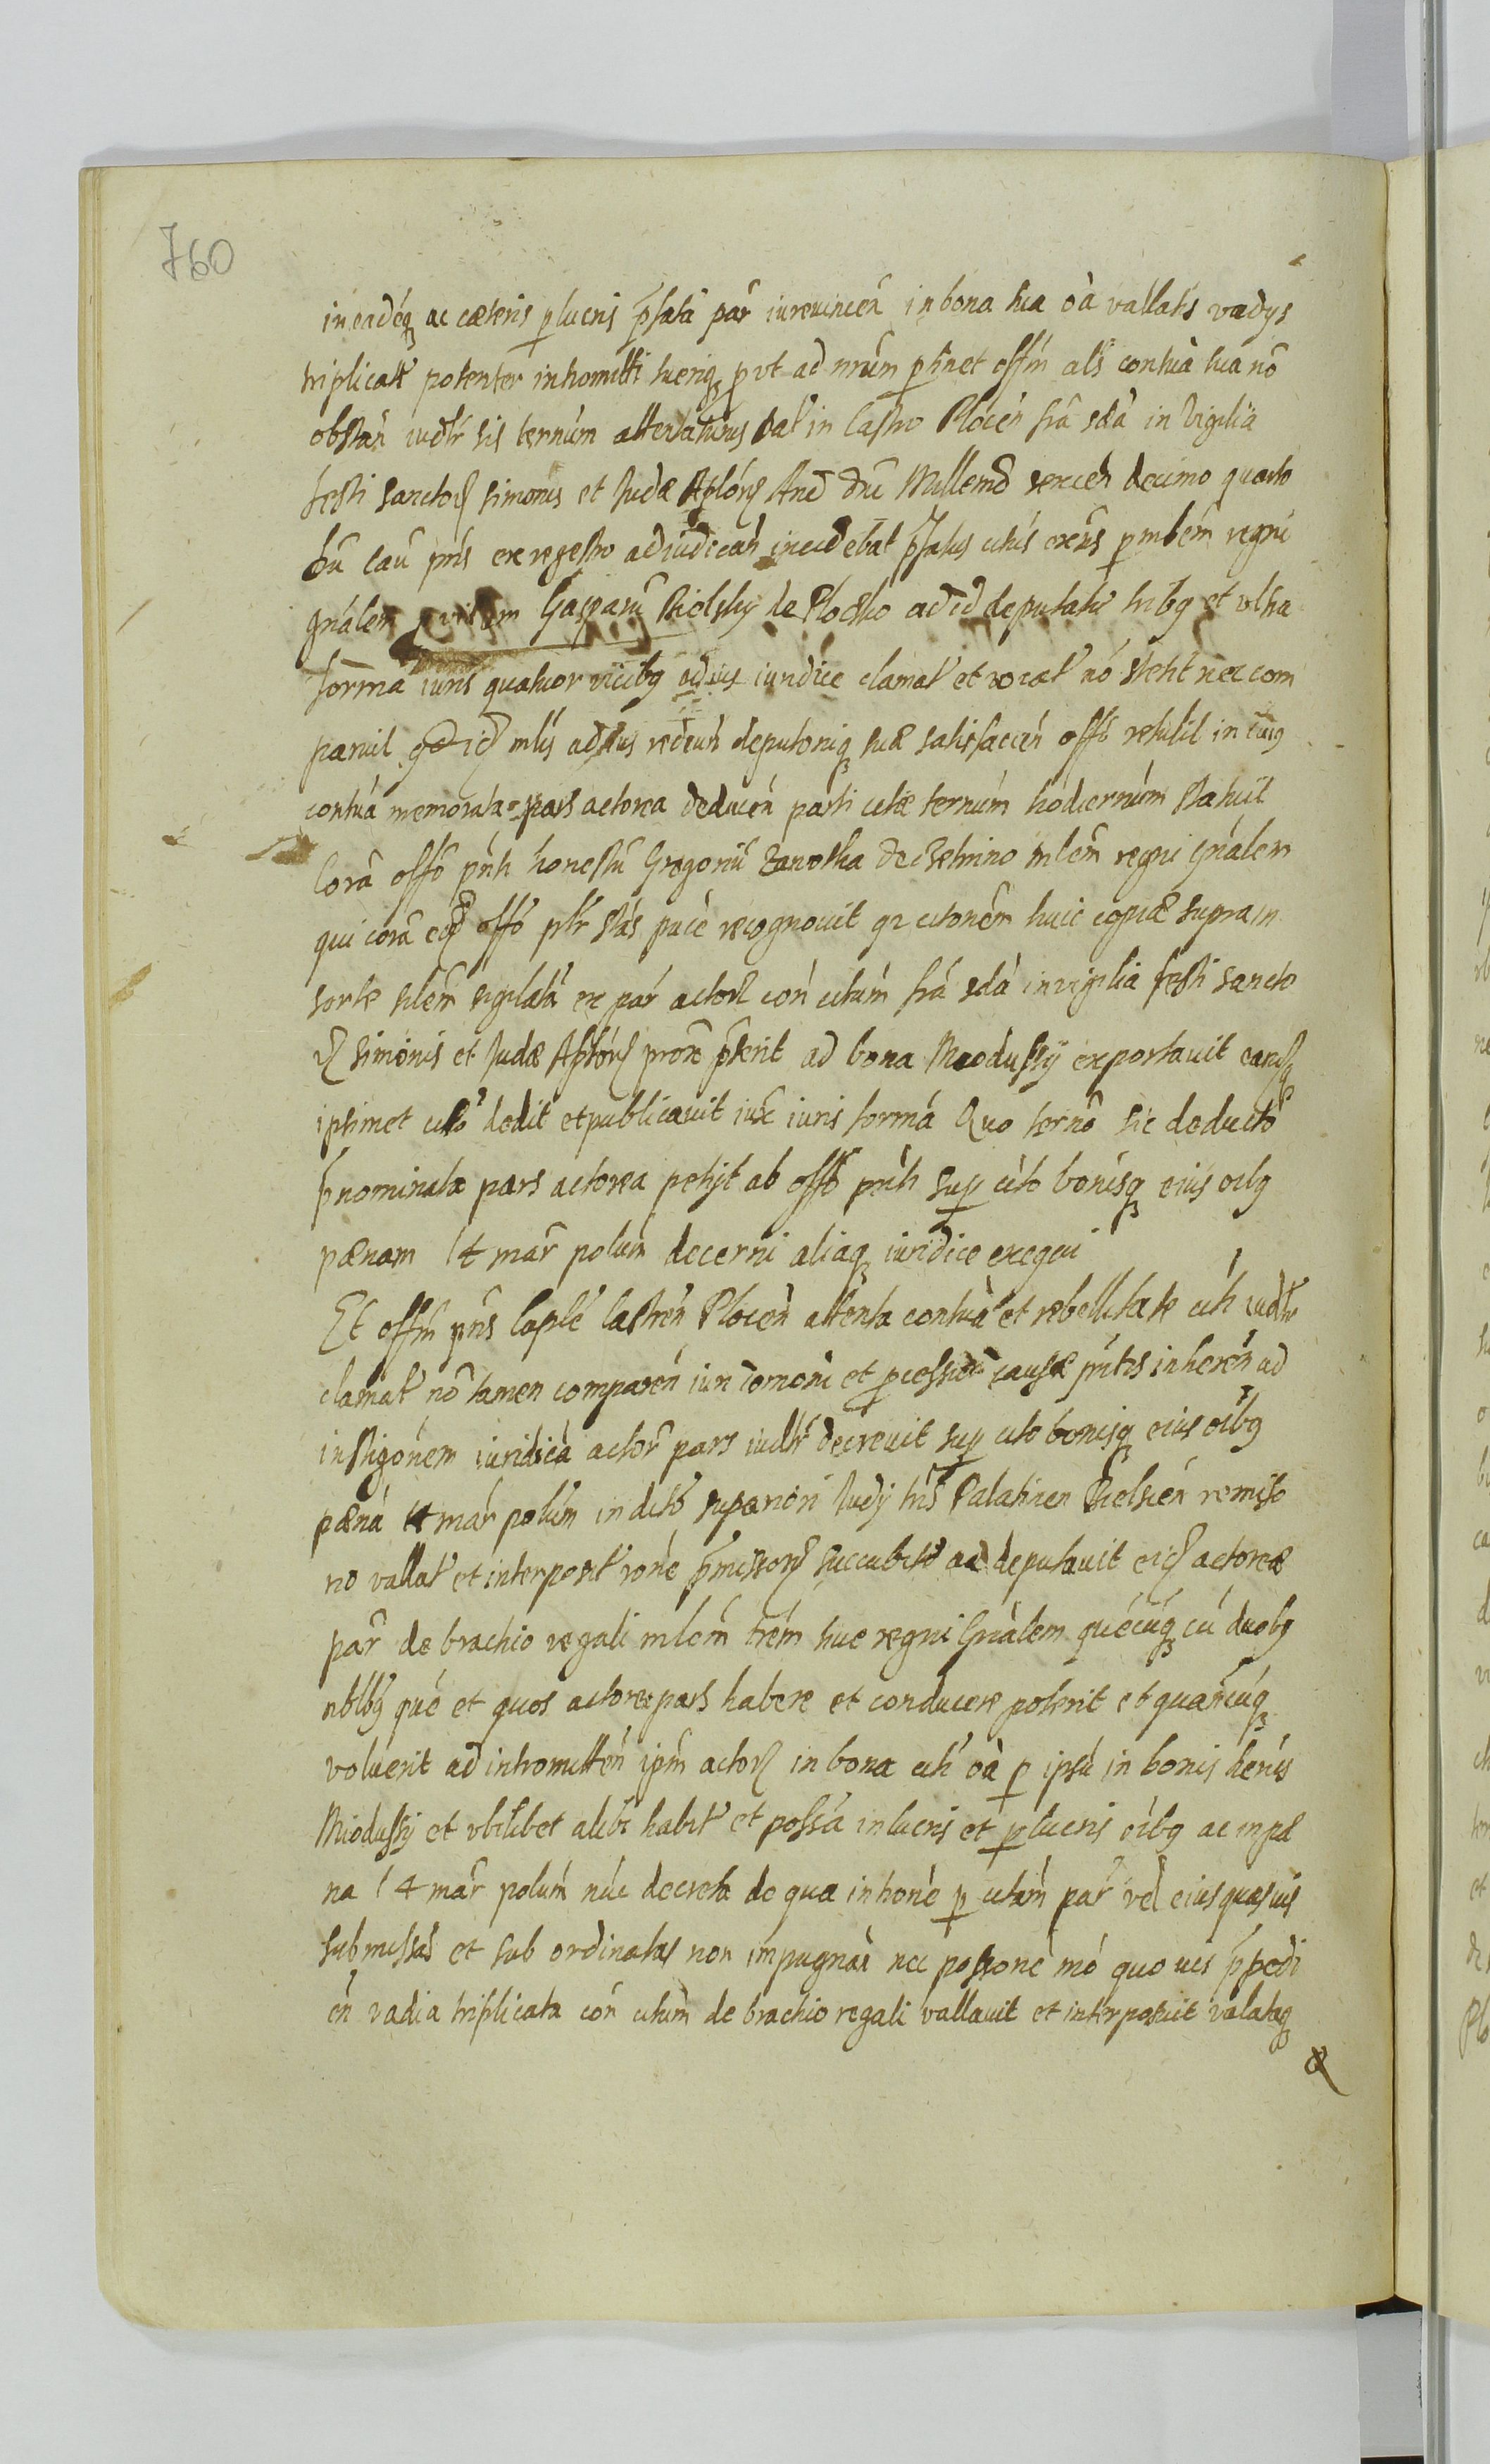 760
in eadéq ac cæteris plucris pfatã par iurevincen in bona sua oã vallatis vadys
triplicat potenter intromitti sueriq put ad nrúm ptinet offm als contuà sua nõ
obstan iudlr sis ternúm attentaturus Dat in Castro Plocen fiã sdà in Vigilia
festi sanctoR simonis et Judæ AplórR Anõ dni Millemõ sexcen decimo quarto
pnis ex regestro adiudicaǹ incidebat pfatus citus exñs p mlém regni
gnálem pvidum Gasparú Bielsky de Plocko ad id deputatú tribq et vltra
formã iuris quatuor vicibq ad ius iuridice clamat et vocat nõ stetit nec com
paruit qd id mlis ad ius redeun deputoniq suæ satisfacien offo retulit in cuiq
contuà memorata pars actorea deducén parti citæ ternúm hodiernúm statuit
Corã offõ pnti honestú Gregoriú Zanoska de mlém regni gnálem
qui corã eod offõ pltr stás pacè recognovit qz citonêm huic copiæ supra in
sorte silém sigilatã ex par actoR con citum fiã sdà in vigilia festi sancto
R simonis et Judæ AplórR prox pterit ad bona Miodussy exportavit eamq
ipsimet cito dedit et publicavit iux iuris formã Quo ternõ sic deducto
pnominata pars actorea petyt ab offõ pnti sup cito bonisq eius oibq
pænam 14 mar polum decerni aliaq iuridice exequi
Et offm pns Caplé Castren Plocen attenta contuà et rebellitate citi iudlr
clamat nõ tamen comparén iur et pcessui causæ pntis inherén ad
instigónem iuridicà actor pars iudlr decrevit sup cito bonisq eius oibq
pænà 14 mar polúm in dicto superiori Judy tris Palatinen Bielscén remiso
no vallat et interposit pmissorR succubito ac deputavit eid actoreæ
par de brachio regali mlém trém sive regni Gnàlem quécúq cú duobq
nblbq qué et quos actorea pars habere et conducere poterit et quancúq
voluerit ad intromitten ipm actoR in bona citi oà p ipsú in bonis
Miodussy et vbilibet alibi habit et possà in lucris et plucris oibq ac in pæ
na 14 mar polúm núc decreta de qua intronè p citám par vel eius quasuis
submissas et sub ordinatas non impugnãi nec mó quo uis ppedi
én vadia triplicata cón citum de brachio regali vallavit et interposuit valataq